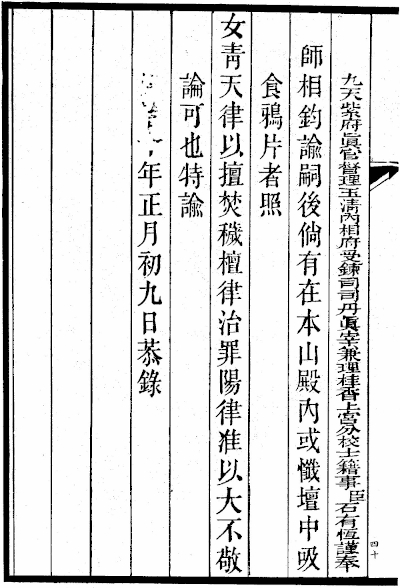 九天紫府眞官督理玉淸內相府受鍊司司丹眞宰兼理桂香上宮分校士籍事臣石有恆謹奉
師相鈞諭嗣後倘有在本山殿內或懺壇中吸
食鴉片者照
女靑天律以擅焚穢檀律治罪陽律准以大不敬
論可也特諭
年正月初九日恭錄
四十